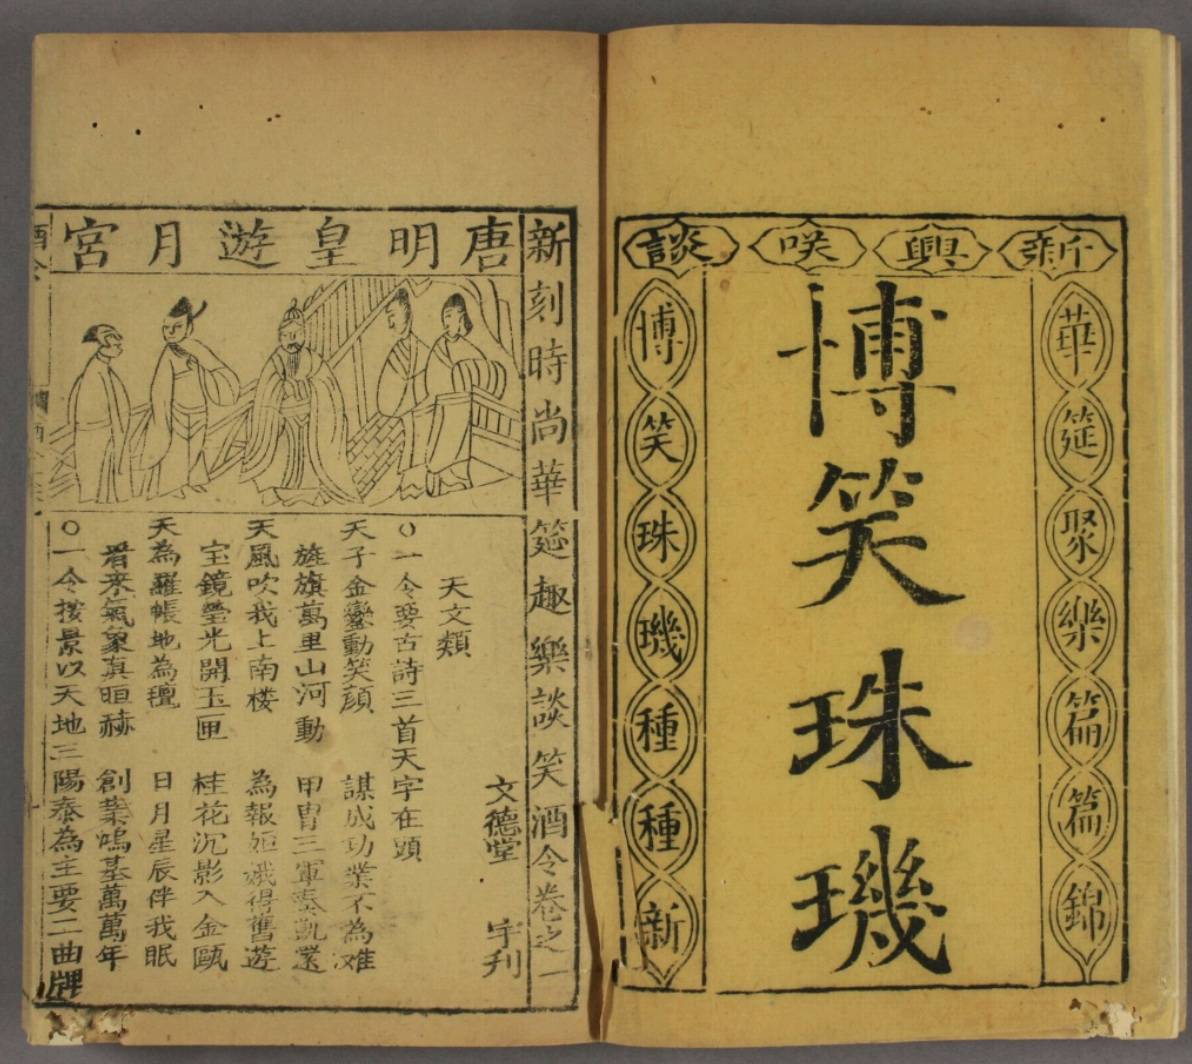 新興咲談
華筵聚樂篇篇錦
博笑珠璣
博笑珠璣種種新
新刻時尚華筵趣樂談笑酒令卷之一
唐明皇遊月宮
文德堂 字刊
天文類
○一令要古詩三首天字在頭
天子金鑾動笑顔 謀成功業不為难
旌旗萬里山河動 甲冑三軍奏凱還
天風吹我上南楼 為報姮娥得舊遊
宝鏡瑩光開玉匣 桂花沉影入金甌
天為羅帳地為氊 日月星辰伴我眠
看來氣象真晅赫 創業鳴基萬萬年
○一令按景以天地三陽泰為主要二曲牌